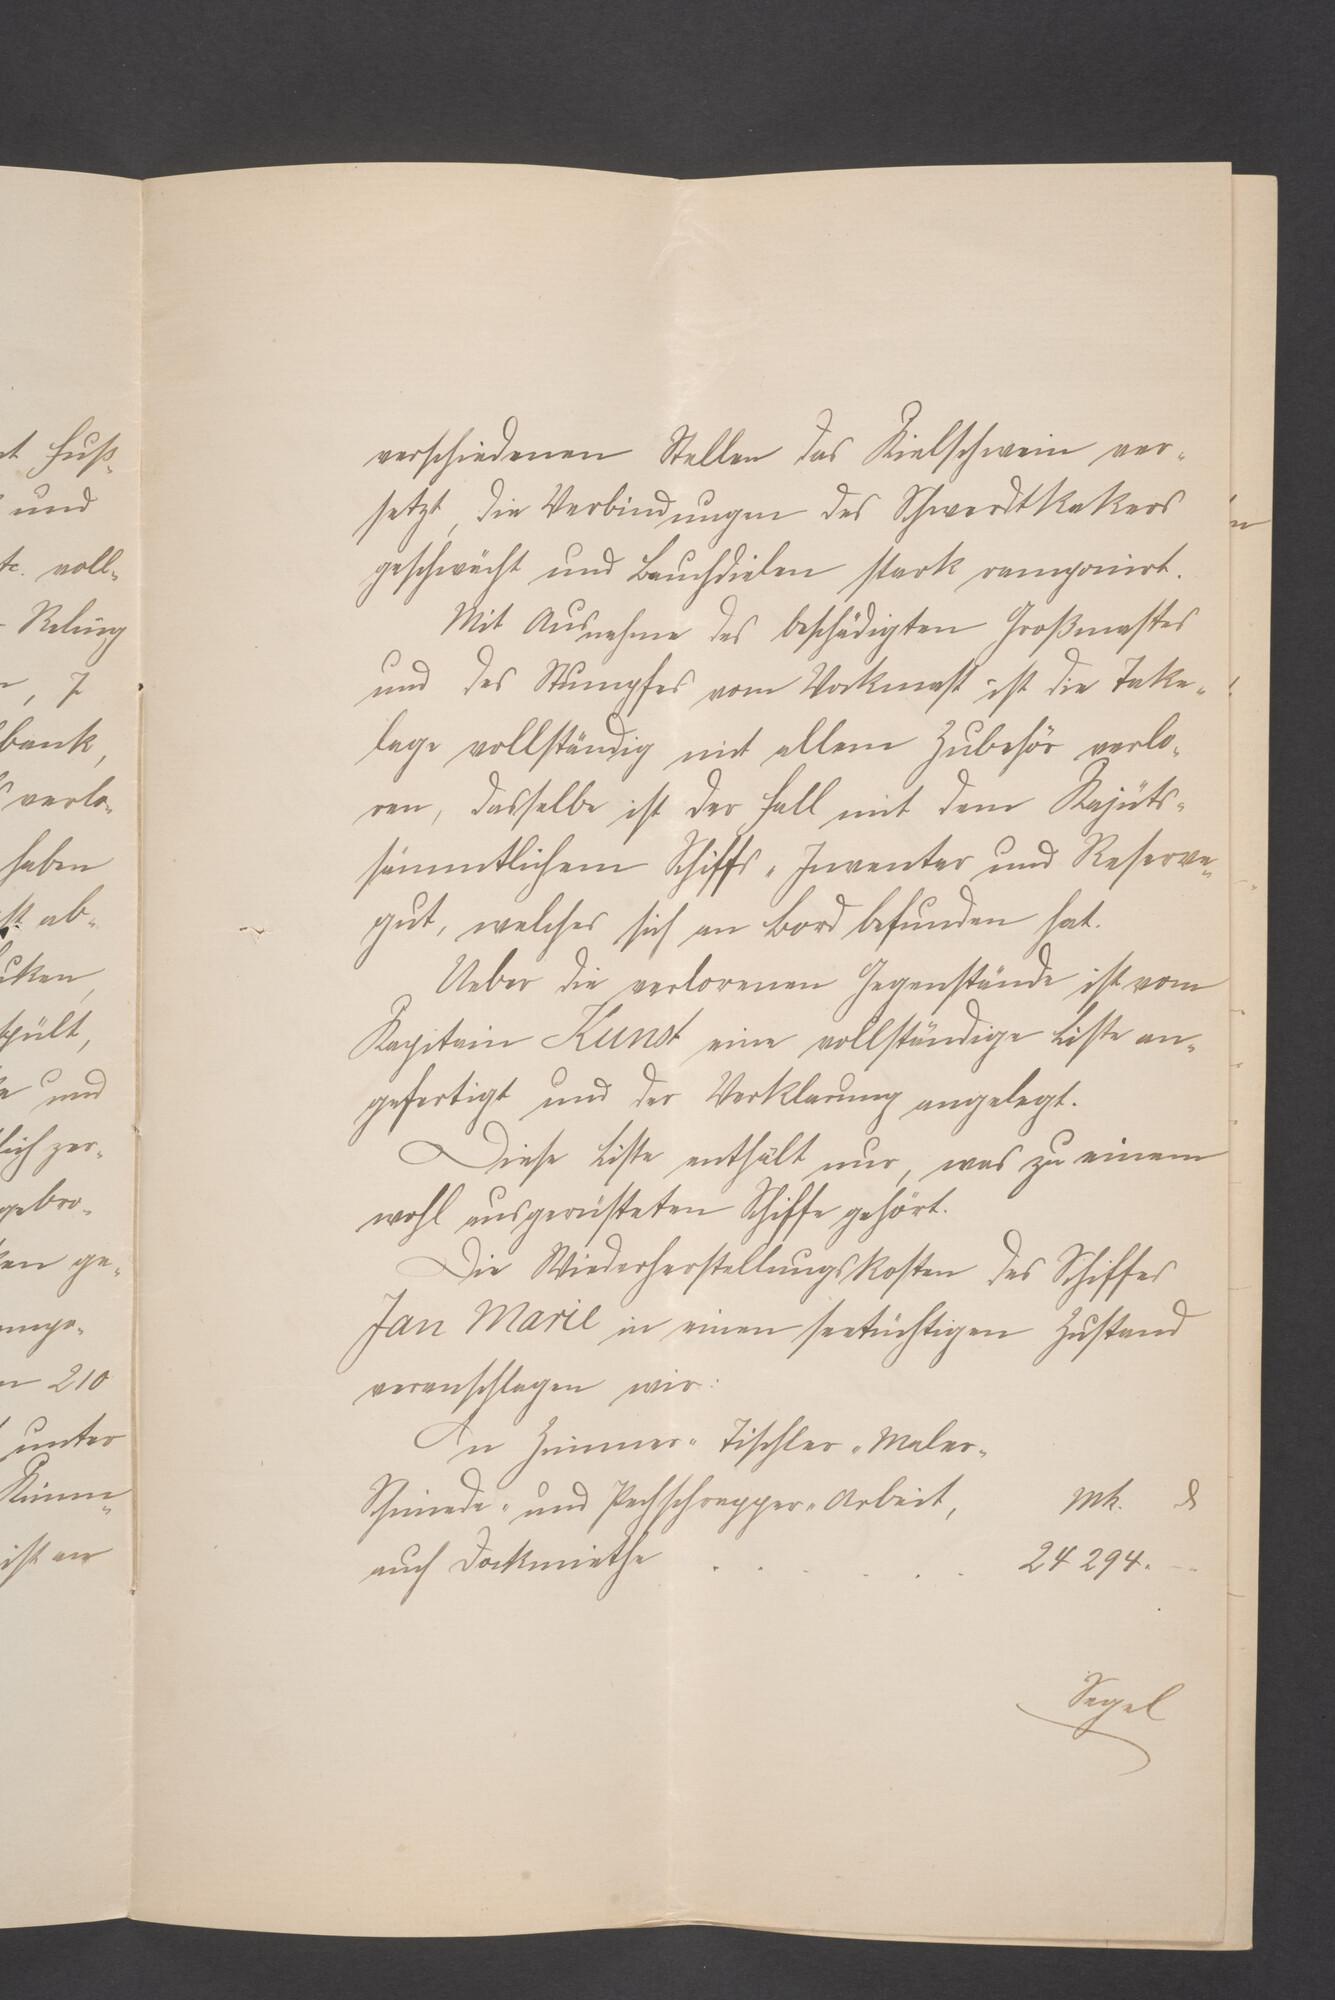 t Fuß-
und
tc. voll-
Reling
, 7
bank,
verlo-
haben
st ab-
uken,
spült,
und
lich zer-
gebro-
ken ge-
rampo-
n 210
unter
Kimm-
ist an
verschiedenen Stellen das Kielschwein ver-
setzt, die Verbindungen des Schwerdtkakers
geschwächt und Bauchdielen stark ramponirt.
Mit Ausnahme des beschädigten Großmastes
und des Stumpfes vom Vockmast ist die Take-
lage vollständig mit allem Zubehör verlo-
ren, dasselbe ist der Fall mit dem Kajüts-
sämmtlichem Schiffs-Inventar und Reserve-
gut, welches sich an Bord befunden hat.
Ueber die verlorenen Gegenstände ist vom
Kapitain Kunst eine vollständige Liste an-
gefertigt und der Verklarung angelegt.
Diese Liste enthält nur, was zu einem
wohl ausgerüsteten Schiffe gehört.
Die Wiederherstellungskosten des Schiffes
Jan Marie in einen seetüchtigen Zustand
veranschlagen wir:
An Zimmer- Tischler- Maler-
Schmiede- und Pechschrapper-Arbeit, Mk. ₰
auch Dockmiethe . . . . . . 24 294. —
Segel